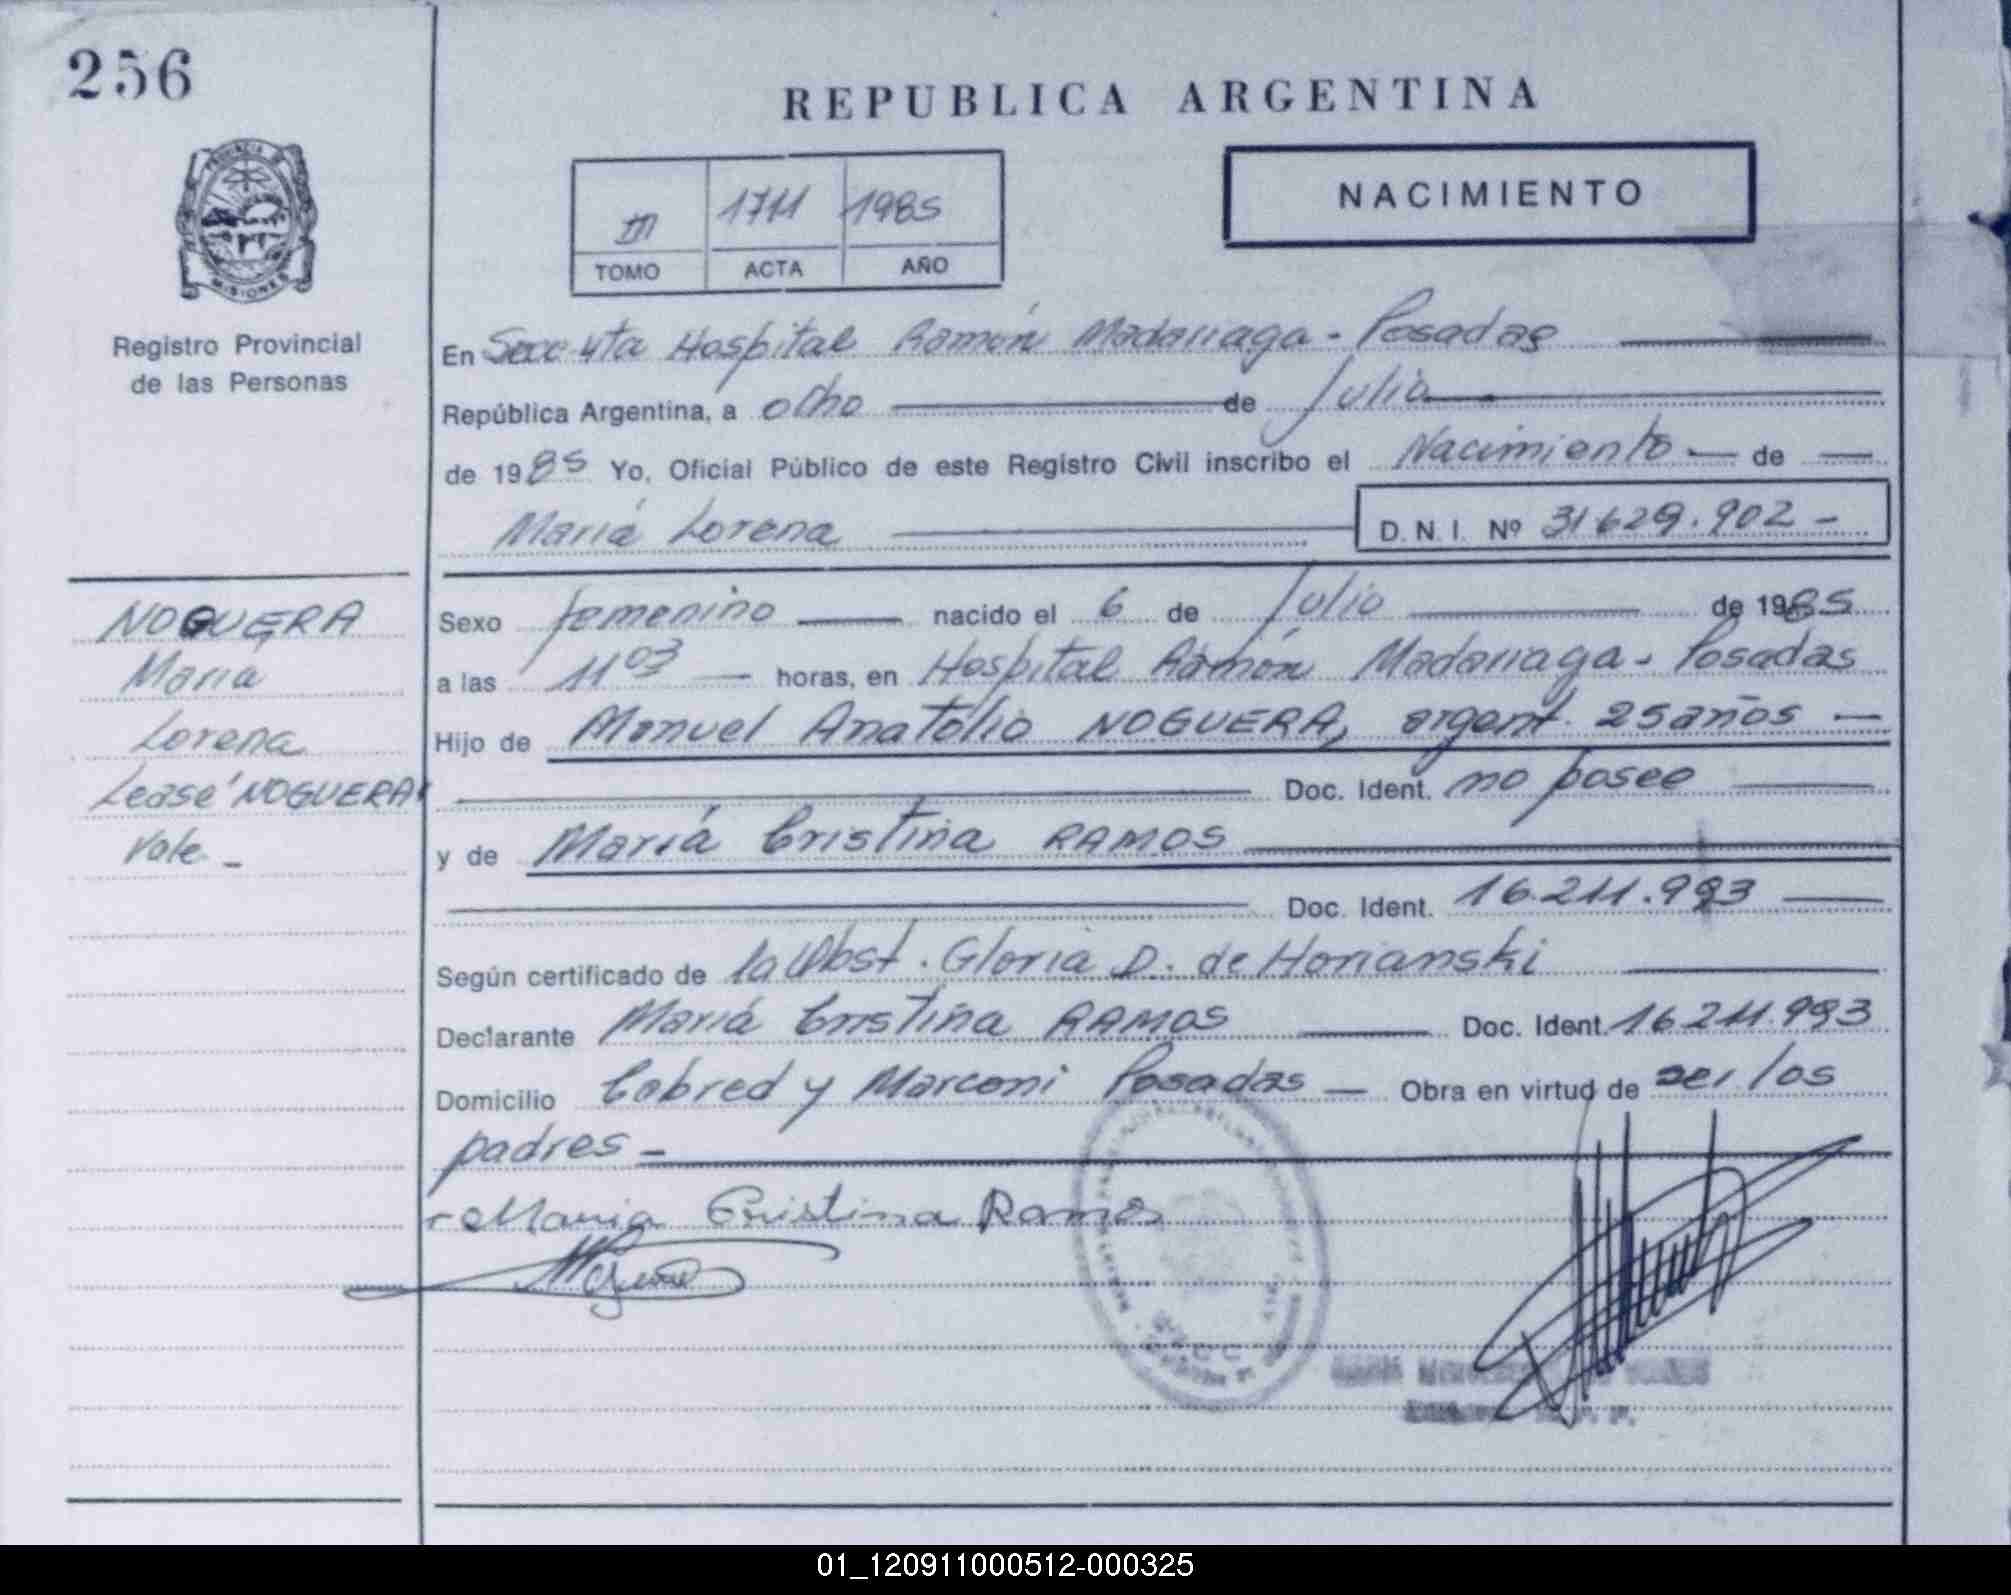 256
REPUBLICA ARGENTINA
NACIMIENTO
III 1711 1985
TOMO ACTA AÑO
PROVINCIA DE
MISIONES
Registro Provincial
de las Personas
En Secc 4ta Hospital Ramón Madariaga - Posadas
República Argentina, a ocho de Julio
de 1985 Yo, Oficial Público de este Registro Civil inscribo el Nacimiento de
María Lorena D.N.I. Nº 31629.902 -
NOGUERA
Maria
Lorena
Lease "NOGUERA"
Vale -
Sexo femenino nacido el 6 de Julio de 1985
a las 11 03 horas, en Hospital Ramón Madariaga - Posadas
Hijo de Manuel Anatolio NOGUERA, argent. 25 años
Doc. Ident. no posee
y de María Cristina RAMOS
Doc. Ident. 16.211.993
Según certificado de la Obst. Gloria D. de Horianski
Declarante María Cristina RAMOS Doc. Ident. 16211.993
Domicilio Cabred y Marconi Posadas Obra en virtud de ser los
padres -
Maria Cristina Ramos
01_120911000512-000325